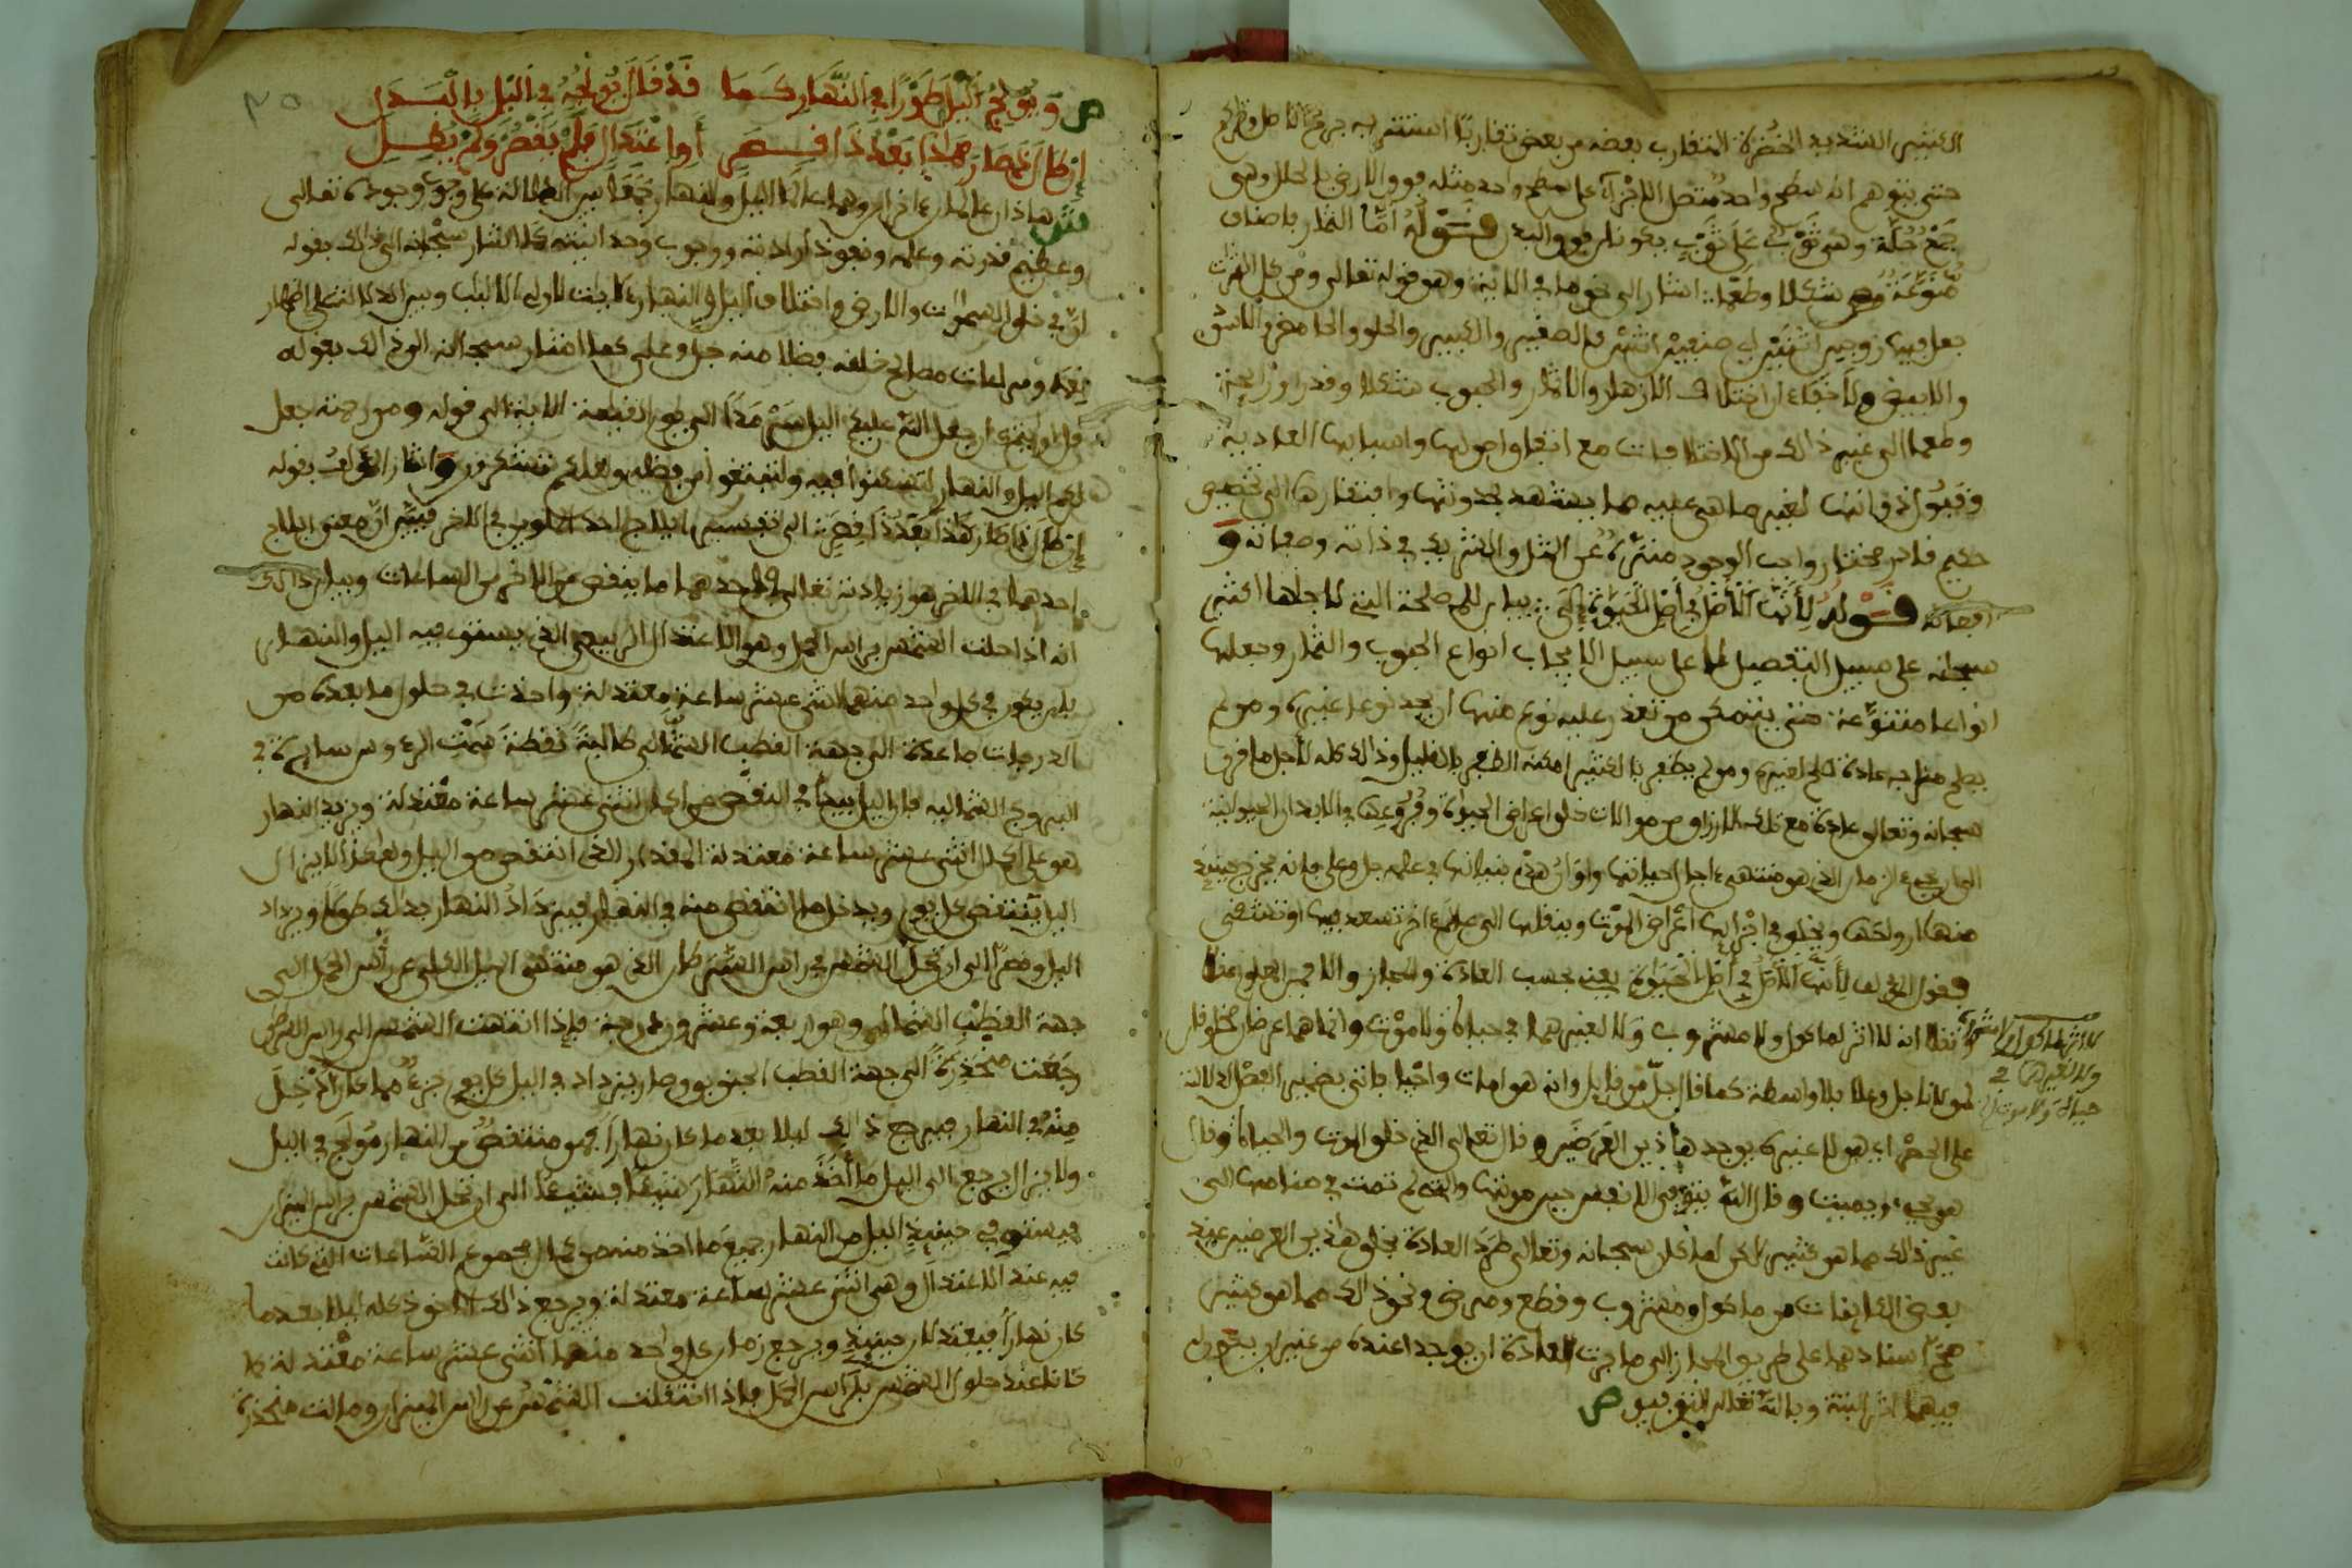 الكثير الشديد الخضرة المتقارب بعضه من بعض تقاربا استتر به جرم
حتى يتوهم انه سطح واحد متصل الاجزاء على سطح واحد مثله فوق الارض بالحلل وهي
جمع حلة وهي ثوب على ثوب يكونان فوق البدن قوله اما الثمار باصناف
منوعة شكلا وطعما اشار الى نحو ما في الاية وهو قوله تعالى ومن كل الثمرات
جعل فيها زوجين اثنين اي صنفين اثنين كالصغير والكبير والحلو والحامض والاسود
والابيض ولا خفاء ان اختلاف الازهار والاثمار والحبوب شكلا وقدرا ورائحة
وطعما الى غير ذلك من الاختلافات مع اتفاق اصولها واسبابها العادية
وقبول ذواتها لغير ما هي عليه مما يشهد بحدوثها وافتقارها الى تخصيص
حكيم قادر مختار واجب الوجود منزه عن المثل والشريك في ذاته وصفاته و
افعاله قوله لانها الاصل في اصل الحيوة بيان للمصلحة التي لاجلها اكثر
سبحانه على سبيل التفضيل لا على سبيل الايجاب انواع الحبوب والثمار وجعلها
انواعا متنوعة حتى يتمكن من تعذر عليه نوع منها ان يجد نوعا غيره ومن لم
يصلح مزاجه عادة صلح لغيره ومن لم يطعم بالكثير امكنه الطعم بالقليل وذلك كله لاجل ما فرق
سبحانه وتعالى عادة مع تلك الارزاق من موالات خلق اعراض الحيوة وفروعها في الابدان الحيوانية
الى ان يجيء الزمان الذي هو منتهى اجل احيائها واوان هدم بنيانها في علمه جل وعلا فانه يخرج حينئذ
منها ارواحها ويخلق في اجزائها اعراض الموت وينقلها الى عالم اخر تسعد فيها او تشقى
فقول المؤلف لانها الاصل في اصل الحيوة يعني بحسب العادة والمجاز والا فمن المعلوم عندنا
لا اثر لماكول ولا مشروب
ولا لغيرهما في
حياة ولا موت
انه لا اثر لماكول ولا مشروب ولا لغيرهما في حياة ولا موت وانما هما عرضان مخلوقان
لمولانا جل وعلا بلا واسطة كما قال جل من قائل وانه هو امات واحيا فاتى بضمير الفصل الدلالة
على الحصر اي هو لا غيره يوجد هاذين العرضين وقال تعالى الذي خلق الموت والحياة وقال
هو يحي ويميت وقال الله يتوفى الانفس حين موتها والتي لم تمت في منامها الى
غير ذلك مما هو كثير لكن لما كان سبحانه وتعالى طرد العادة بخلق هاذين العرضين عند
بعض الكائنات من ماكول ومشروب وقطع ومرض ونحو ذلك مما هو كثير
صح اسنادهما على طريق المجاز الى ما جرت العادة ان يوجدا عنده من غير ان يكون
فيهما اثر البتة وبالله تعالى التوفيق ص
ص ويولج اليل طورا في النهار كما قد قال يولجه في اليل بالبدل
ان كان ذا صار هذا بعد ذا قصر او اعتدال فلم يقصر ولم يطل
ش هاذان عالمان اخران وهما عالما اليل والنهار جمعا بين الدلالة على وجوب وجوده تعالى
وعظيم قدرته وعلمه ونفوذ ارادته ووجوب وحدانيته كما اشار سبحانه الى ذلك بقوله
ان في خلق السموات والارض واختلاف اليل والنهار لايات لاولي الالباب وبين الدلالة على اظهار
نعمه ومراعات مصالح خلقه فضلا منه جل وعلى كما اشار سبحانه الى ذلك بقوله
قل ارايتم ان جعل الله عليكم اليل سرمدا الى يوم القيامة الاية الى قوله ومن رحمته جعل
لكم اليل والنهار لتسكنوا فيه ولتبتغوا من فضله ولعلكم تشكرون واشار المؤلف بقوله
ان طال ذا كان هذا بعد ذا قصر الى تفسير ايلاج احد الملوين في الاخر فبين ان معنى ايلاج
احدهما في الاخر هو زيادته تعالى في احدهما ما ينقص من الاخر من الساعات وبيان ذلك
انه اذا حلت الشمس براس الحمل وهو الاعتدال الربيعي الذي يستوي فيه اليل والنهار
بان يكون في كل واحد منهما اثنى عشر ساعة معتدلة واخذت في حلول ما بعده من
الدرجات صاعدة الى جهة القطب الشمالي طالبة نقطة سمت الرءوس سايرة في
البروج الشمالية فان اليل يبدأ في النقص من اكمال اثنى عشر ساعة معتدلة ويزيد النهار
هو على اكمال اثنى عشر ساعة معتدلة المقدار الذي انتقص من اليل وهكذا لا يزال
اليل ينتقص كل يوم ويدخل ما انتقص منه في النهار فيزداد النهار بذلك طولا ويزداد
اليل قصرا الى ان تحل الشمس في راس السرطان الذي هو منتهى الميل الكلي عن راس الحمل الى
جهة القطب الشمالي وهو اربعة وعشرون درجة فاذا انتهت الشمس الى راس السرطان
رجعت منحدرة الى جهة القطب الجنوبي وصار يزداد في اليل كل يوم جزء مما كان ادخل
منه في النهار فيرجع ذلك ليلا بعد ما كان نهارا فهو منتقص من النهار مولج في اليل
ولا يزال يرجع الى اليل ما اخذ منه النهار شيئا فشيئا الى ان تحل الشمس براس الميزان
فيستوفي حينئذ اليل من النهار جميع ما اخذ منه من كمال مجموع الساعات التي كانت
فيه عند الاعتدال وهي اثنى عشر ساعة معتدلة ويرجع ذلك الماخوذ كله ليلا بعد ما
كان نهارا فيعتدلان حينئذ ويرجع زمان كل واحد منهما اثنى عشر ساعة معتدلة كما
كانا عند حلول الشمس براس الحمل فاذا انتقلت الشمس عن راس الميزان ومالت منحدرة